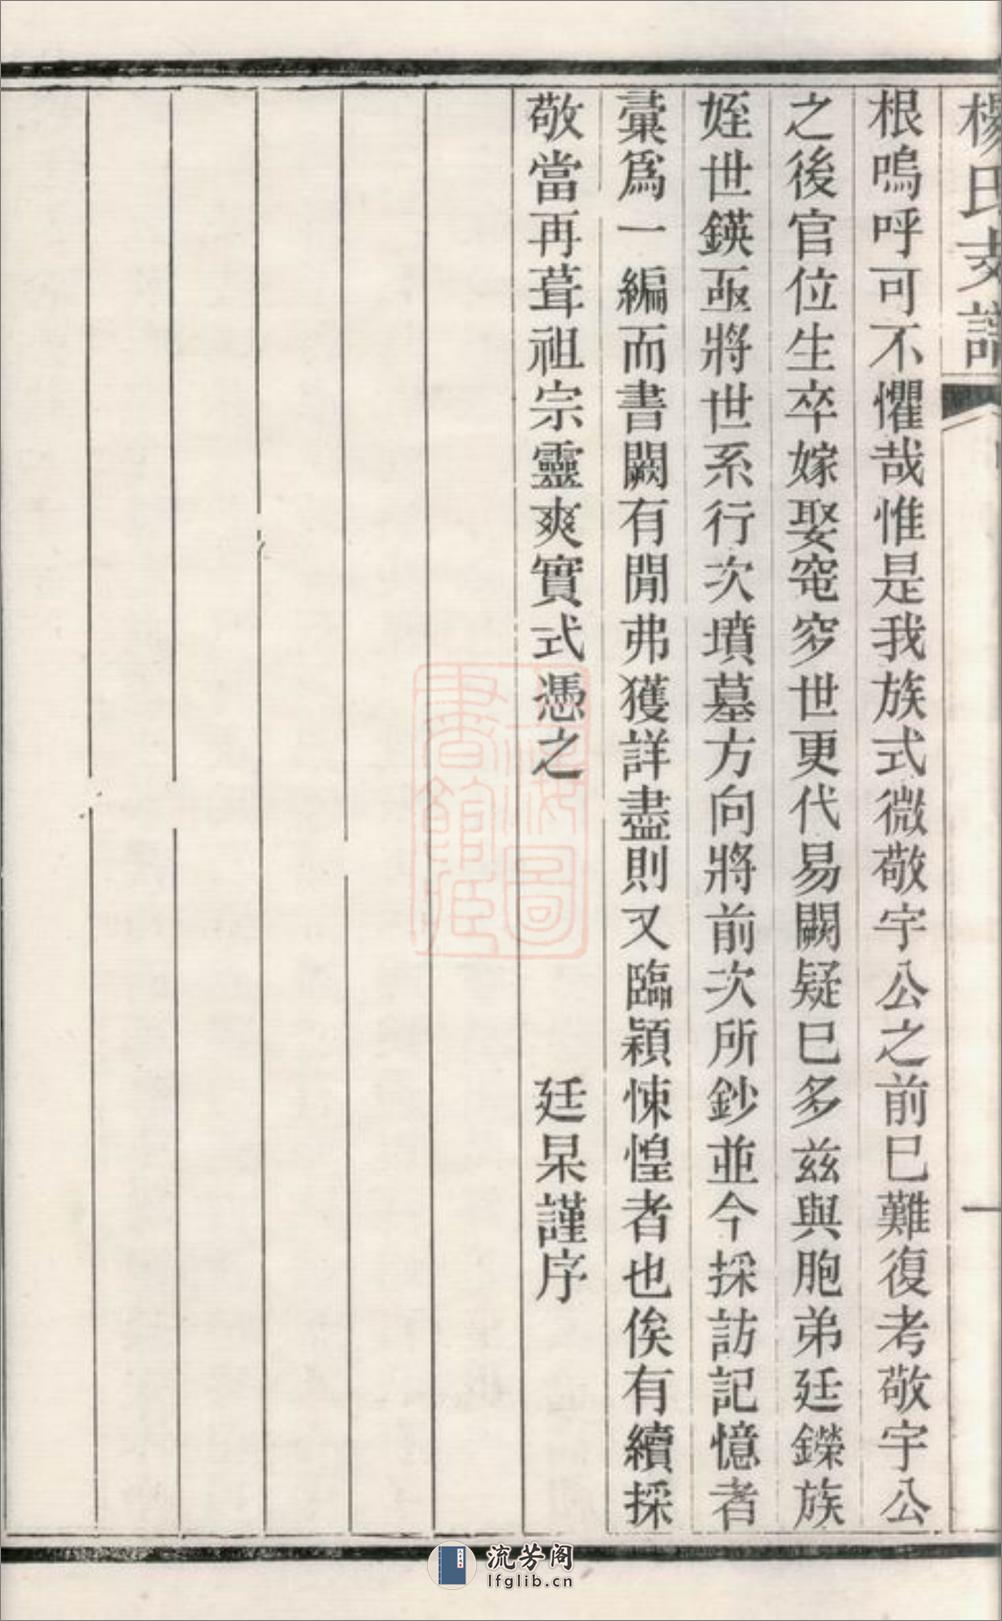 楊氏支譜
一
根嗚呼可不懼哉惟是我族式微敬宇公之前巳難復考敬宇公
之後官位生卒嫁娶窀穸世更代易闕疑巳多茲與胞弟廷鑅族
姪世鍈亟將世系行次墳墓方向將前次所鈔並今採訪記憶者
彙爲一編而書闕有閒弗獲詳盡則又臨穎悚惶者也俟有續採
敬當再葺祖宗靈爽實式憑之
廷杲謹序
上海圖書館藏
流芳阁
lfglib.cn